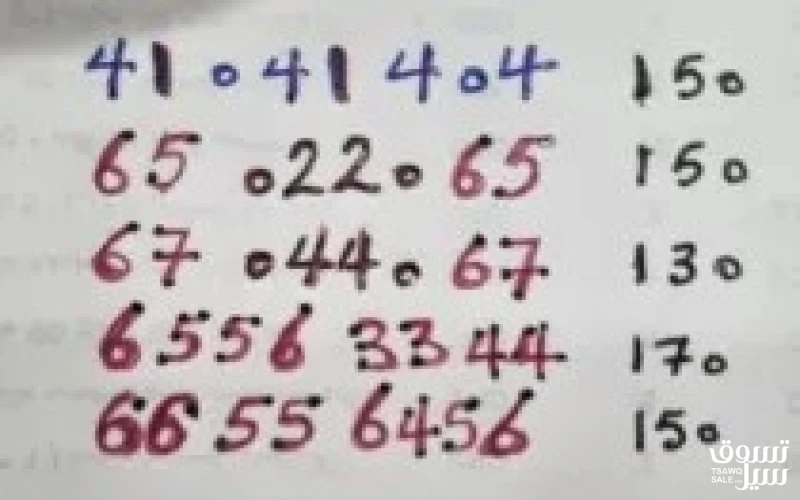 41 0 41 4 0 4 150
65 0 22 0 65 150
67 0 44 0 67 130
6556 3344 170
6655 6456 150
تسوق سيل
TSAWQ
SALE.com